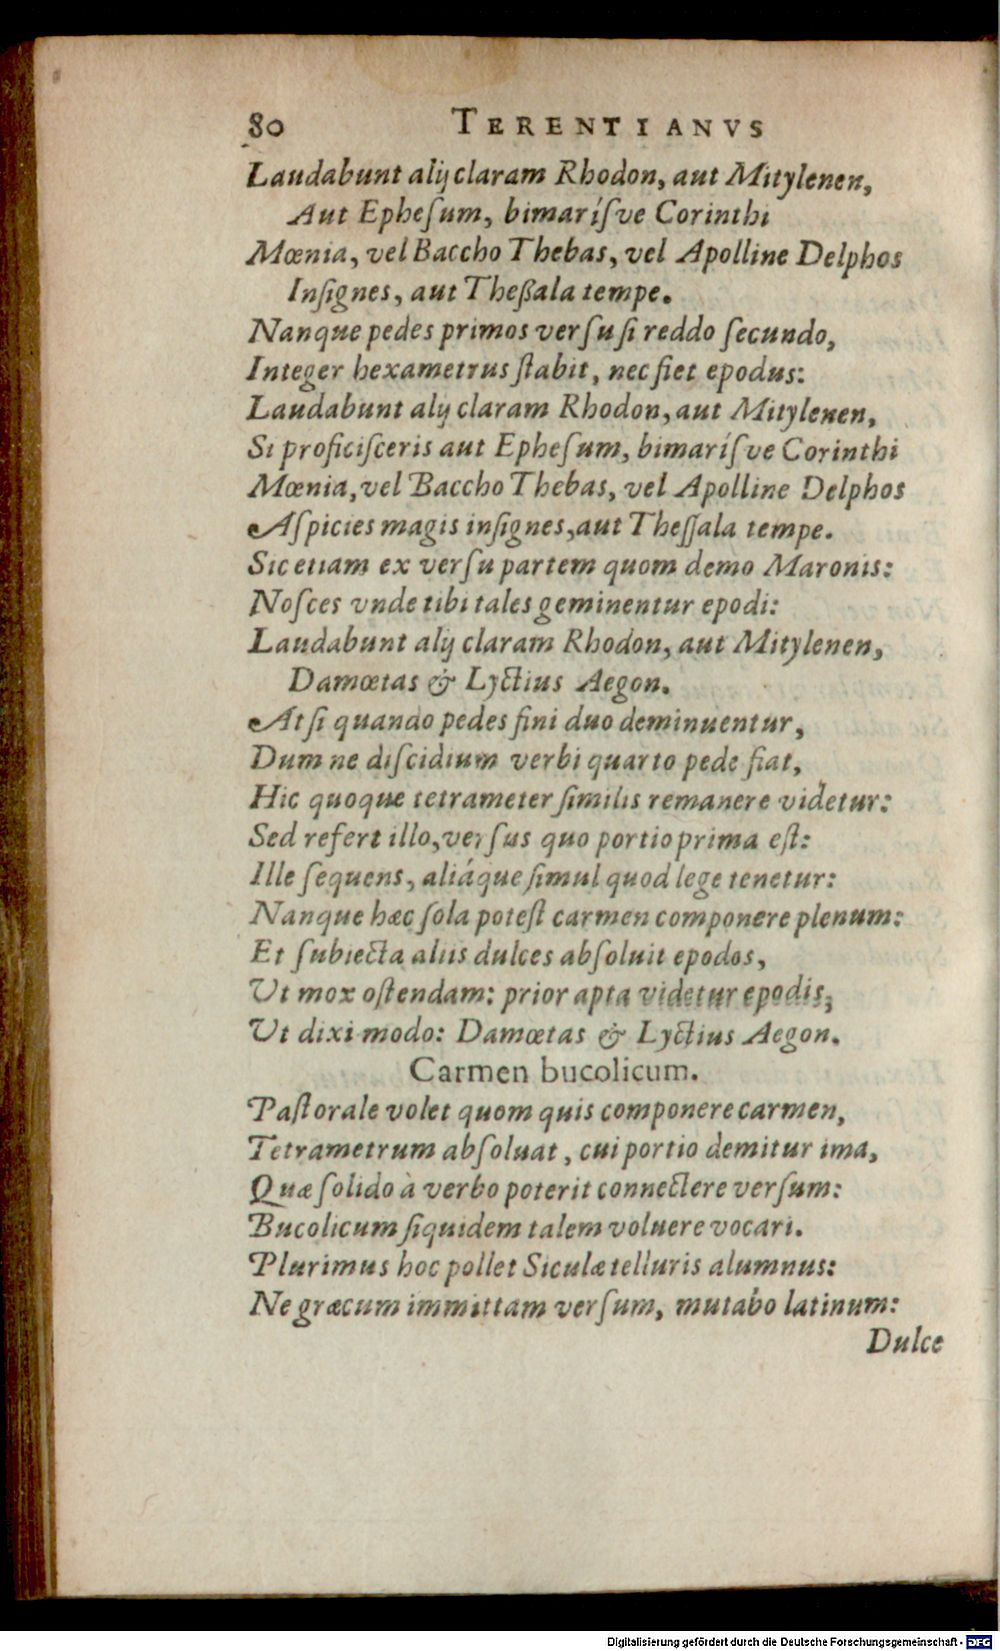 80 TERENTIANVS
Laudabunt alij claram Rhodon, aut Mitylenen,
Aut Epheſum, bimaríſve Corinthi
Mœnia, vel Baccho Thebas, vel Apolline Delphos
Inſignes, aut Theßala tempe.
Nanque pedes primos verſu ſi reddo ſecundo,
Integer hexametrus ſtabit, nec fiet epodus:
Laudabunt alij claram Rhodon, aut Mitylenen,
Si proficiſceris aut Epheſum, bimaríſve Corinthi
Mœnia, vel Baccho Thebas, vel Apolline Delphos
Aſpicies magis inſignes, aut Theſſala tempe.
Sic etiam ex verſu partem quom demo Maronis:
Noſces vnde tibi tales geminentur epodi:
Laudabunt alij claram Rhodon, aut Mitylenen,
Damœtas & Lyctius Aegon.
At ſi quando pedes fini duo deminuentur,
Dum ne diſcidium verbi quarto pede fiat,
Hic quoque tetrameter ſimilis remanere videtur:
Sed refert illo, verſus quo portio prima eſt:
Ille ſequens, aliáque ſimul quod lege tenetur:
Nanque hæc ſola poteſt carmen componere plenum:
Et ſubiecta aliis dulces abſoluit epodos,
Vt mox oſtendam: prior apta videtur epodis,
Vt dixi modo: Damœtas & Lyctius Aegon.
Carmen bucolicum.
Paſtorale volet quom quis componere carmen,
Tetrametrum abſoluat, cui portio demitur ima,
Quæ ſolido à verbo poterit connectere verſum:
Bucolicum ſiquidem talem voluere vocari.
Plurimus hoc pollet Siculæ telluris alumnus:
Ne græcum immittam verſum, mutabo latinum:
Dulce
Digitalisierung gefördert durch die Deutsche Forschungsgemeinschaft - DFG